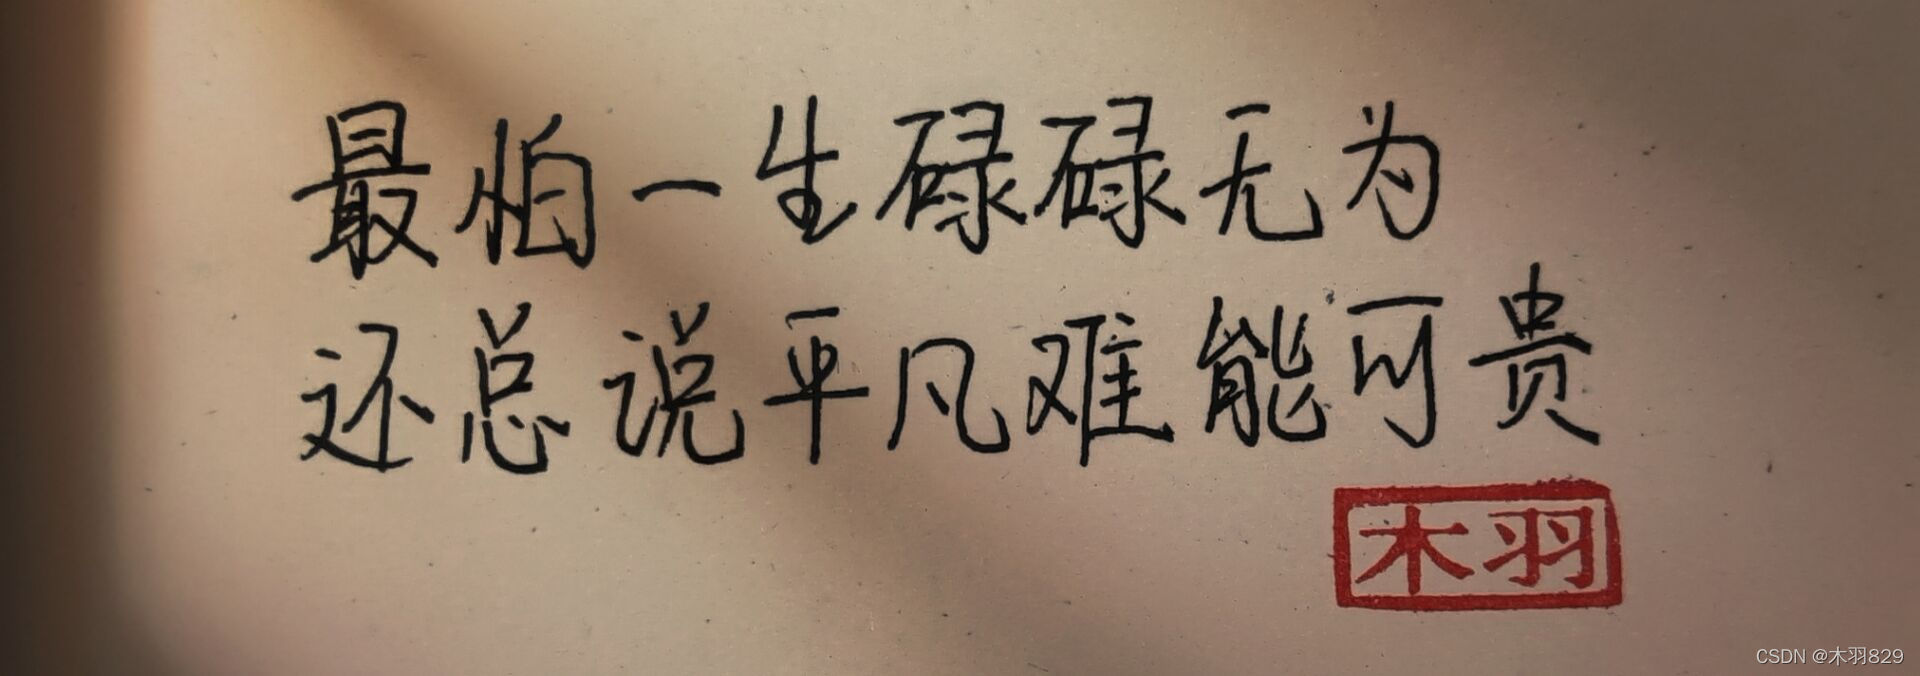 最怕一生碌碌无为
还总说平凡难能可贵
木羽
CSDN @木羽829